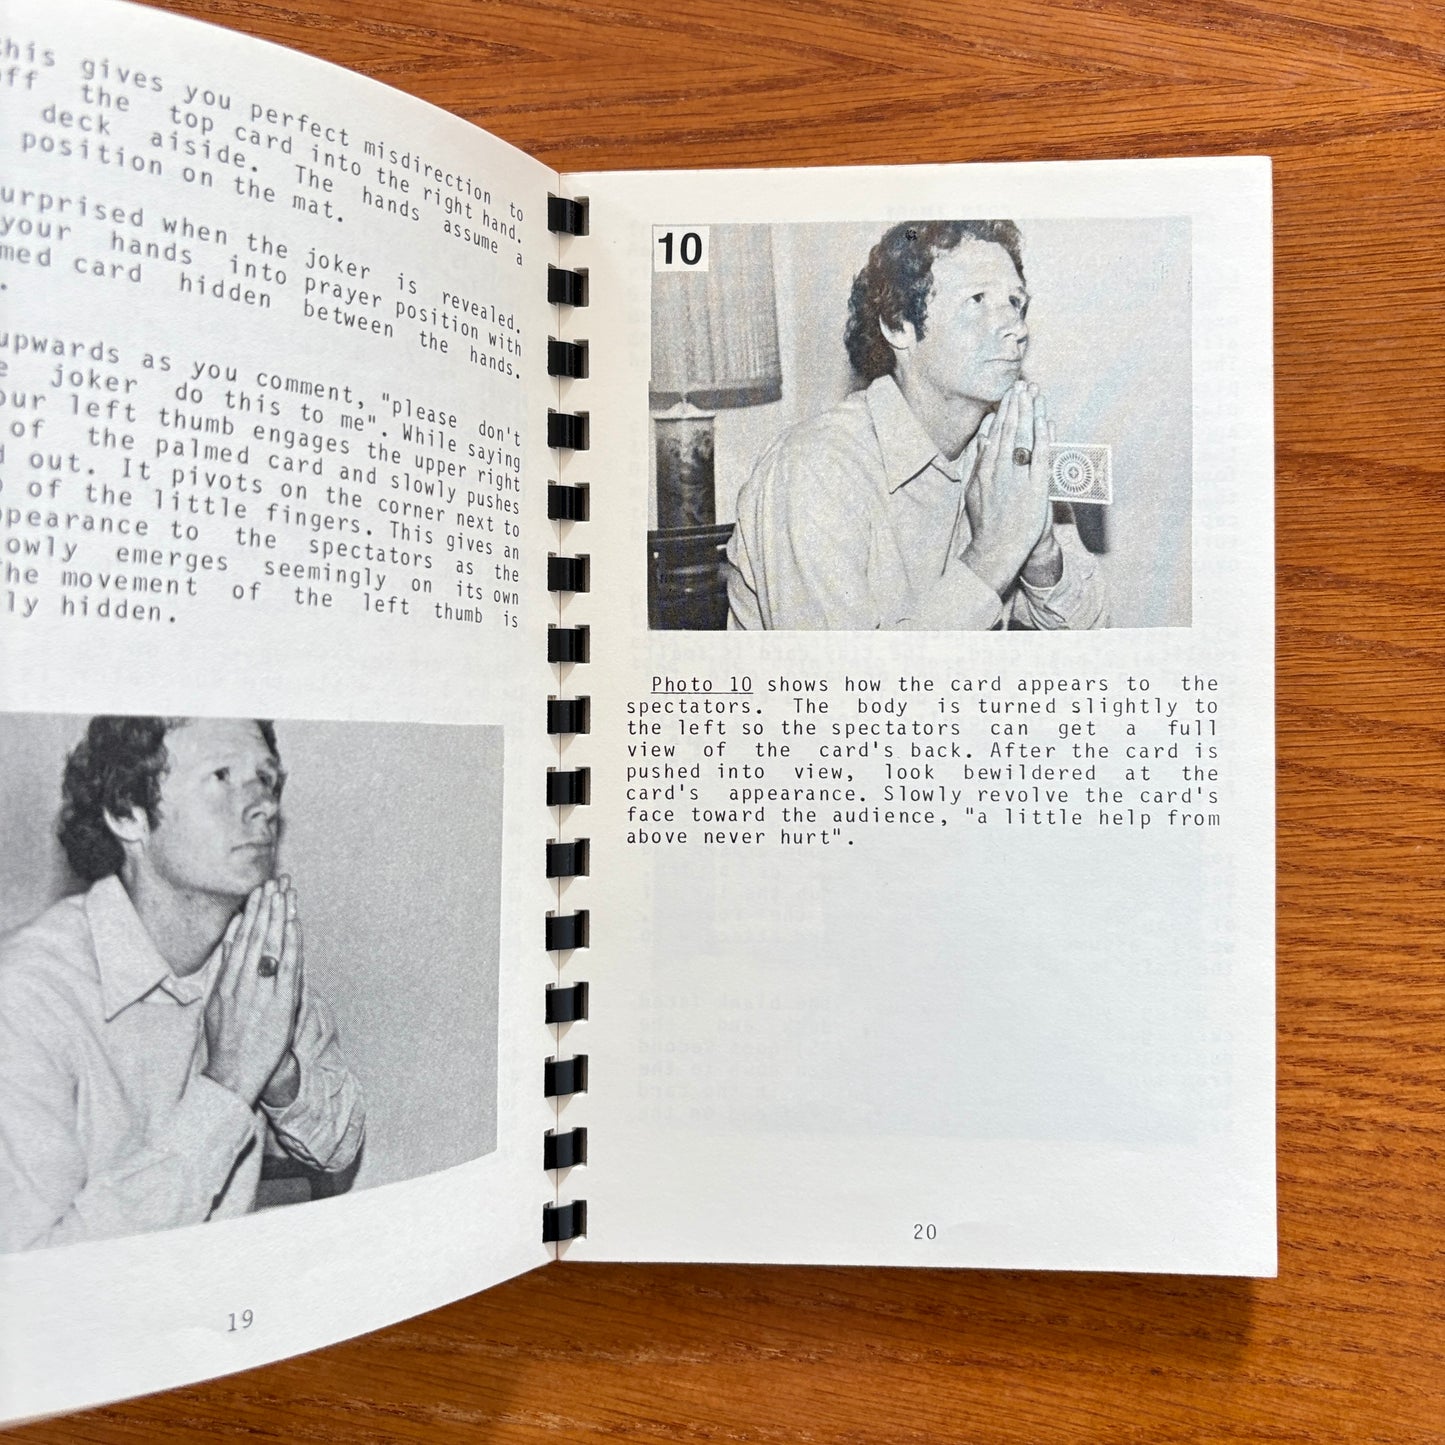 this gives you perfect misdirection to
off the top card into the right hand.
deck aiside. The hands assume a
position on the mat.
urprised when the joker is revealed.
your hands into prayer position with
med card hidden between the hands.
.
upwards as you comment, "please don't
e joker do this to me". While saying
our left thumb engages the upper right
of the palmed card and slowly pushes
d out. It pivots on the corner next to
p of the little fingers. This gives an
ppearance to the spectators as the
owly emerges seemingly on its own
The movement of the left thumb is
ly hidden.
19
10
Photo 10 shows how the card appears to the
spectators. The body is turned slightly to
the left so the spectators can get a full
view of the card's back. After the card is
pushed into view, look bewildered at the
card's appearance. Slowly revolve the card's
face toward the audience, "a little help from
above never hurt".
20